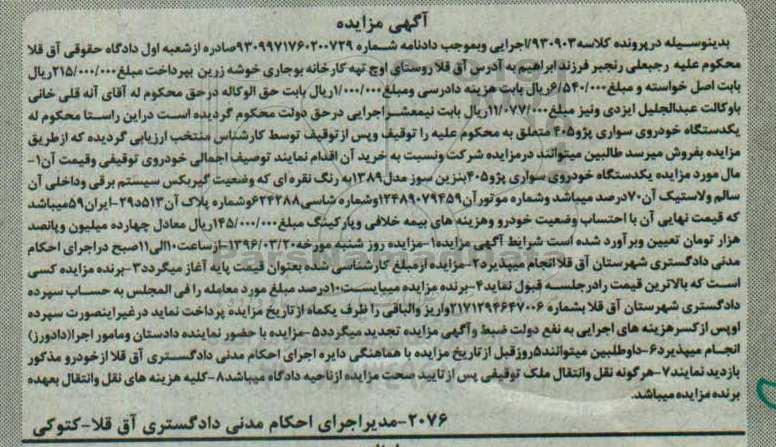 آگهی مزایده
بدینوسیله درپرونده کلاسه۹۳۰۹۰۳/اجرایی وبموجب دادنامه شماره ۹۳۰۹۹۷۱۷۶۰۲۰۰۷۲۹صادره ازشعبه اول دادگاه حقوقی آق قلا
محکوم علیه رجبعلی رنجبر فرزند ابراهیم به آدرس آق قلا روستای اوچ تپه کارخانه بوجاری خوشه زرین بپرداخت مبلغ۲۱۵/۰۰۰/۰۰۰ریال
بابت اصل خواسته و مبلغ۶/۵۴۰/۰۰۰ریال بابت هزینه دادرسی ومبلغ۱/۰۰۰/۰۰۰ریال بابت حق الوکاله درحق محکوم له آقای آنه قلی خانی
باوکالت عبدالجلیل ایزدی ونیز مبلغ۱۱/۰۷۷/۰۰۰ریال بابت نیمعشراجرایی درحق دولت محکوم گردیده است دراین راستا محکوم له
یکدستگاه خودروی سواری پژو۴۰۵ متعلق به محکوم علیه را توقیف وپس ازتوقیف توسط کارشناس منتخب ارزیابی گردیده که ازطریق
مزایده بفروش میرسد طالبین میتوانند درمزایده شرکت ونسبت به خرید آن اقدام نمایند توصیف اجمالی خودروی توقیفی وقیمت آن۱-
مال مورد مزایده یکدستگاه خودروی سواری پژو۴۰۵بنزین سوز مدل۱۳۸۹به رنگ نقره ای که وضعیت گیربکس سیستم برقی وداخلی آن
سالم ولاستیک آن۷۰درصد میباشد وشماره موتورآن۱۲۴۸۹۰۷۹۴۵۹وشماره شاسی۶۲۴۲۸۸وشماره پلاک آن۵۱۳د۲۹-ایران۵۹میباشد
که قیمت نهایی آن با احتساب وضعیت خودرو وهزینه های بیمه خلافی وپارکینگ مبلغ۱۴۵/۰۰۰/۰۰۰ریال معادل چهارده میلیون وپانصد
هزار تومان تعیین وبرآورد شده است شرایط آگهی مزایده۱-مزایده روز شنبه مورخه۱۳۹۶/۰۳/۲۰-ازساعت۱۰الی۱۱صبح دراجرای احکام
مدنی دادگستری شهرستان آق قلاانجام میپذیرد۲-مزایده ازمبلغ کارشناسی شده بعنوان قیمت پایه آغاز میگردد۳-برنده مزایده کسی
است که بالاترین قیمت رادرجلسه قبول نماید۴-برنده مزایده میبایست۱۰درصد مبلغ مورد معامله را فی المجلس به حساب سپرده
دادگستری شهرستان آق قلا بشماره ۲۱۷۱۲۹۴۶۴۷۰۰۶واریز والباقی را ظرف یکماه ازتاریخ مزایده پرداخت نماید درغیراینصورت سپرده
اوپس ازکسرهزینه های اجرایی به نفع دولت ضبط وآگهی مزایده تجدید میگردد۵-مزایده با حضور نماینده دادستان ومامور اجرا(دادورز)
انجام میپذیرد۶-داوطلبین میتوانند۵روزقبل ازتاریخ مزایده با هماهنگی دایره اجرای احکام مدنی دادگستری آق قلا ازخودرو مذکور
بازدید نمایند۷-هرگونه نقل وانتقال ملک توقیفی پس ازتایید صحت مزایده ازناحیه دادگاه میباشد۸-کلیه هزینه های نقل وانتقال بعهده
برنده مزایده میباشد.
۲۰۷۶-مدیراجرای احکام مدنی دادگستری آق قلا-کتوکی